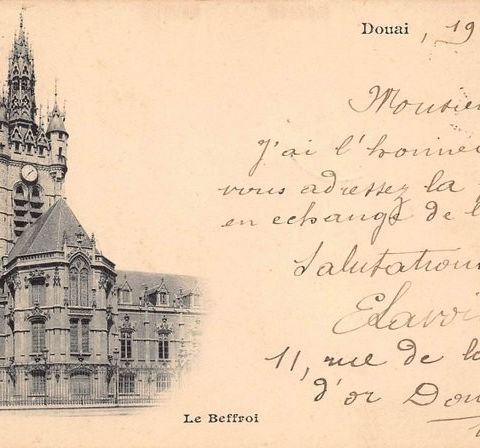 Douai, 19
Monsieu
J'ai l'honne
vous adressez la
en echange de l
Salutation
ELavoi
11, rue de la
d'or Dou
Le Beffroi